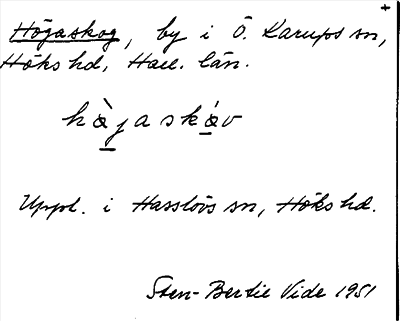 Högaskog, by i Ö. Karups sn,
Höks hd, Hall. län.
hæ̀jaskǽv
Uppt. i Hasslövs sn, Höks hd.
Sten-Bertil Vide 1951